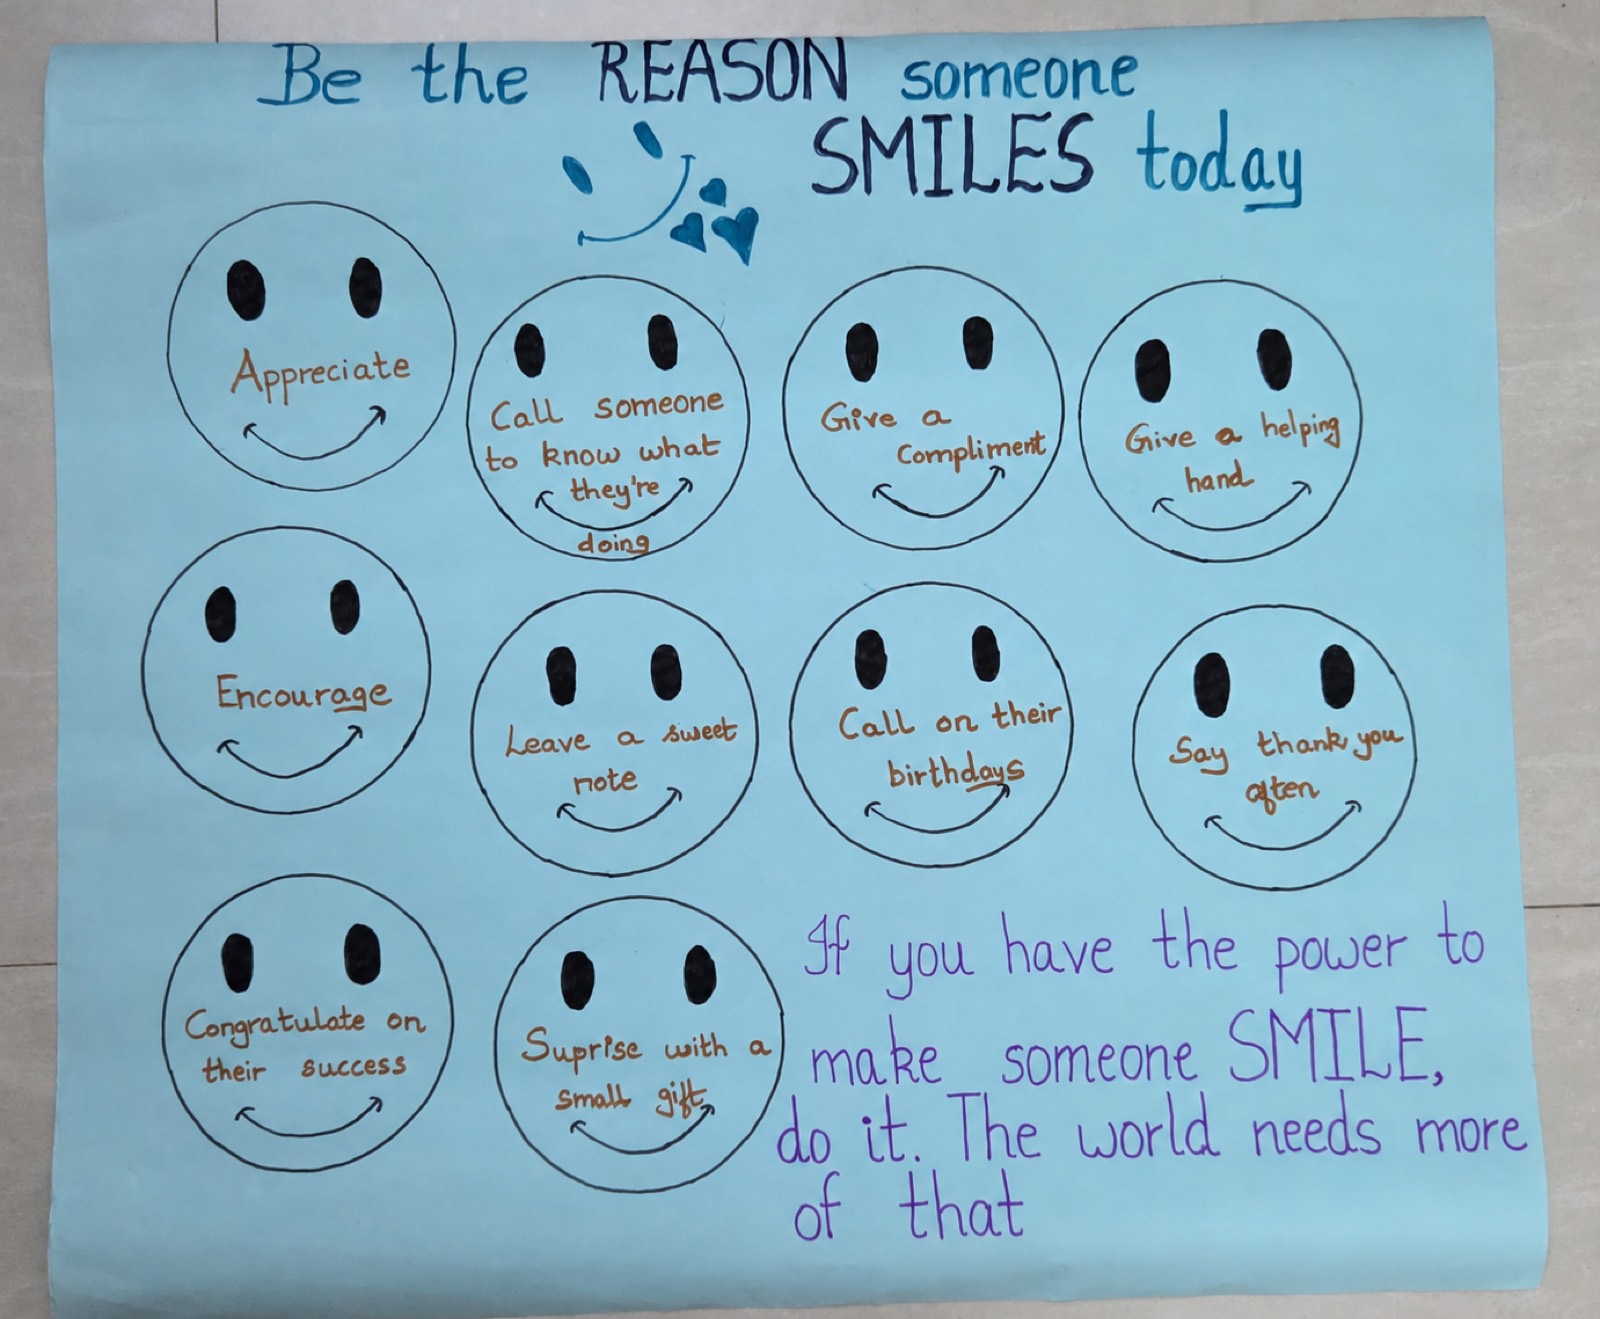 Be the REASON someone
SMILES today
Appreciate
Call someone
to know what
they're
doing
Give a
compliment
Give a helping
hand
Encourage
Leave a sweet
note
Call on their
birthdays
Say thank you
often
Congratulate on
their success
Suprise with a
small gift
If you have the power to
make someone SMILE,
do it. The world needs more
of that